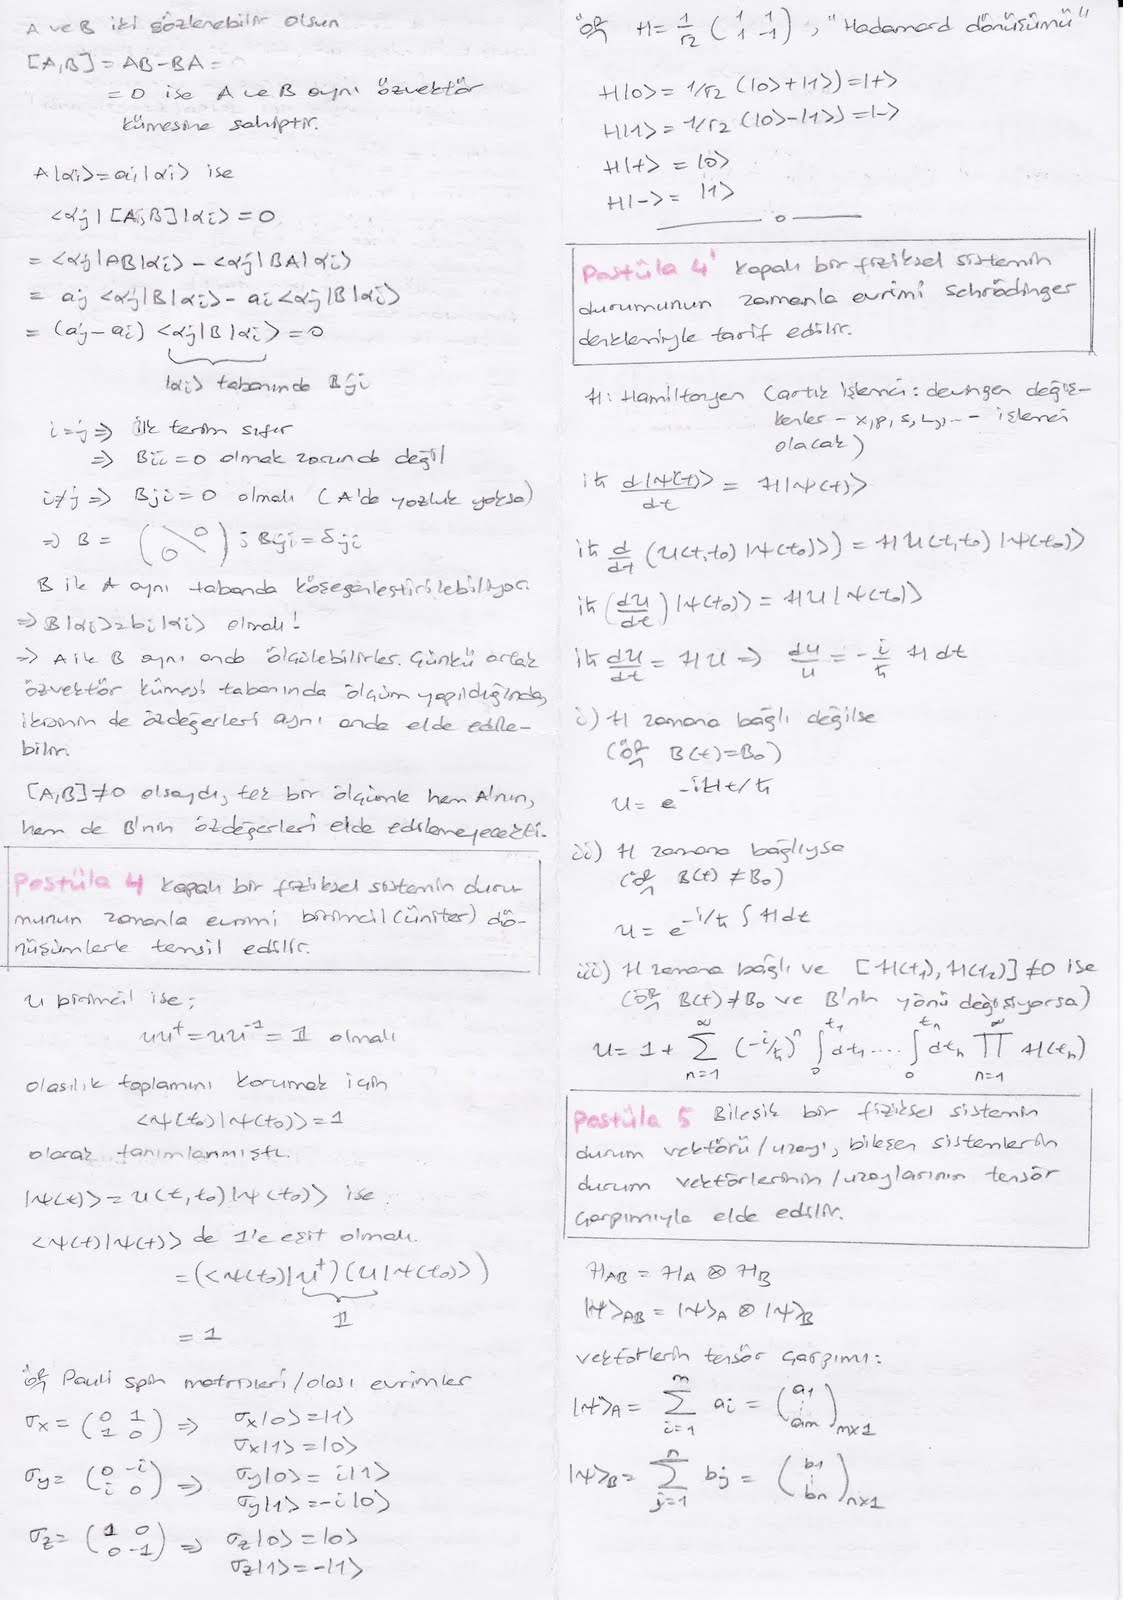 A ve B iki gözlenebilir olsun
[A,B] = AB-BA =
= 0 ise A ve B aynı özvektör
kümesine sahiptir.
A|αi> = ai|αi> ise
<αj|[A,B]|αi> = 0
= <αj|AB|αi> - <αj|BA|αi>
= aj <αj|B|αi> - ai <αj|B|αi>
= (aj-ai) <αj|B|αi> = 0
|αi> tabanında Bji
i=j => ilk terim sıfır
=> Bii = 0 olmak zorunda değil
i≠j => Bji = 0 olmalı (A'da yozluk yoksa)
=> B = (0 \ 0) ; Bji = δji
B ile A aynı tabanda köşegenleştirilebiliyor.
=> B|αi> = bi|αi> olmalı!
=> A ile B aynı anda ölçülebilirler. Çünkü ortak
özvektör kümesi tabanında ölçüm yapıldığında,
ikisinin de özdeğerleri aynı anda elde edile-
bilir.
[A,B] ≠ 0 olsaydı, tek bir ölçümle hem A'nın,
hem de B'nin özdeğerleri elde edilemeyecekti.
Postüla 4 Kapalı bir fiziksel sistemin duru-
munun zamanla evrimi birimcil (üniter) dö-
nüşümlerle temsil edilir.
U birimcil ise;
UU† = UU⁻¹ = 𝟙 olmalı
olasılık toplamını korumak için
<Ψ(t₀)|Ψ(t₀)> = 1
olarak tanımlanmıştı.
|Ψ(t)> = U(t,t₀)|Ψ(t₀)> ise
<Ψ(t)|Ψ(t)> de 1'e eşit olmalı.
= (<Ψ(t₀)|U†)(U|Ψ(t₀)>)
𝟙
= 1
ör Pauli spin matrisleri/olası evrimler
σx = (0 1; 1 0) => σx|0> = |1>
σx|1> = |0>
σy = (0 -i; i 0) => σy|0> = i|1>
σy|1> = -i|0>
σz = (1 0; 0 -1) => σz|0> = |0>
σz|1> = -|1>
ör H = 1/√2 (1 1; 1 -1), "Hadamard dönüşümü"
H|0> = 1/√2 (|0>+|1>) = |+>
H|1> = 1/√2 (|0>-|1>) = |->
H|+> = |0>
H|-> = |1>
Postüla 4' Kapalı bir fiziksel sistemin
durumunun zamanla evrimi Schrödinger
denklemiyle tarif edilir.
H: Hamiltonyen (artık işlenci: devingen değiş-
kenler - x, p, s, L, ... - işlenci
olacak)
iħ d|Ψ(t)>/dt = H|Ψ(t)>
iħ d/dt (U(t,t₀)|Ψ(t₀)>) = H U(t,t₀)|Ψ(t₀)>
iħ (dU/dt)|Ψ(t₀)> = HU|Ψ(t₀)>
iħ dU/dt = HU => dU/U = -i/ħ H dt
i) H zamana bağlı değilse
(ör B(t)=B₀)
U = e^(-iHt/ħ)
ii) H zamana bağlıysa
(ör B(t) ≠ B₀)
U = e^(-i/ħ ∫Hdt)
iii) H zamana bağlı ve [H(t₁), H(t₂)] ≠ 0 ise
(ör B(t) ≠ B₀ ve B'nin yönü değişiyorsa)
U = 1 + Σ_{n=1}^{∞} (-i/ħ)ⁿ ∫₀^{t₁} dt₁ .... ∫₀^{tₙ} dtₙ ∏_{n=1}^{∞} H(tₙ)
Postüla 5 Bileşik bir fiziksel sistemin
durum vektörü/uzayı, bileşen sistemlerin
durum vektörlerinin/uzaylarının tensör
çarpımıyla elde edilir.
H_AB = H_A ⊗ H_B
|Ψ>_AB = |Ψ>_A ⊗ |Ψ>_B
vektörlerin tensör çarpımı:
|Ψ>_A = Σ_{i=1}^{m} ai = (a₁ ⋮ am)_{m×1}
|Ψ>_B = Σ_{j=1}^{n} bj = (b₁ ⋮ bn)_{n×1}